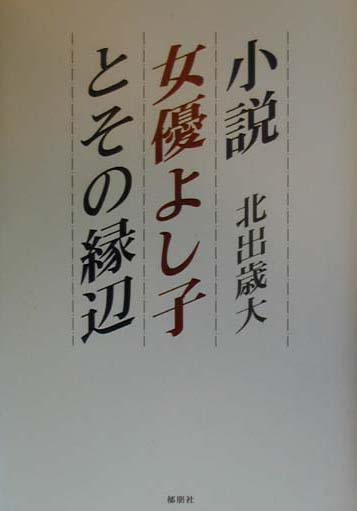 小説
北出歳大
女優よし子
とその縁辺
郁朋社